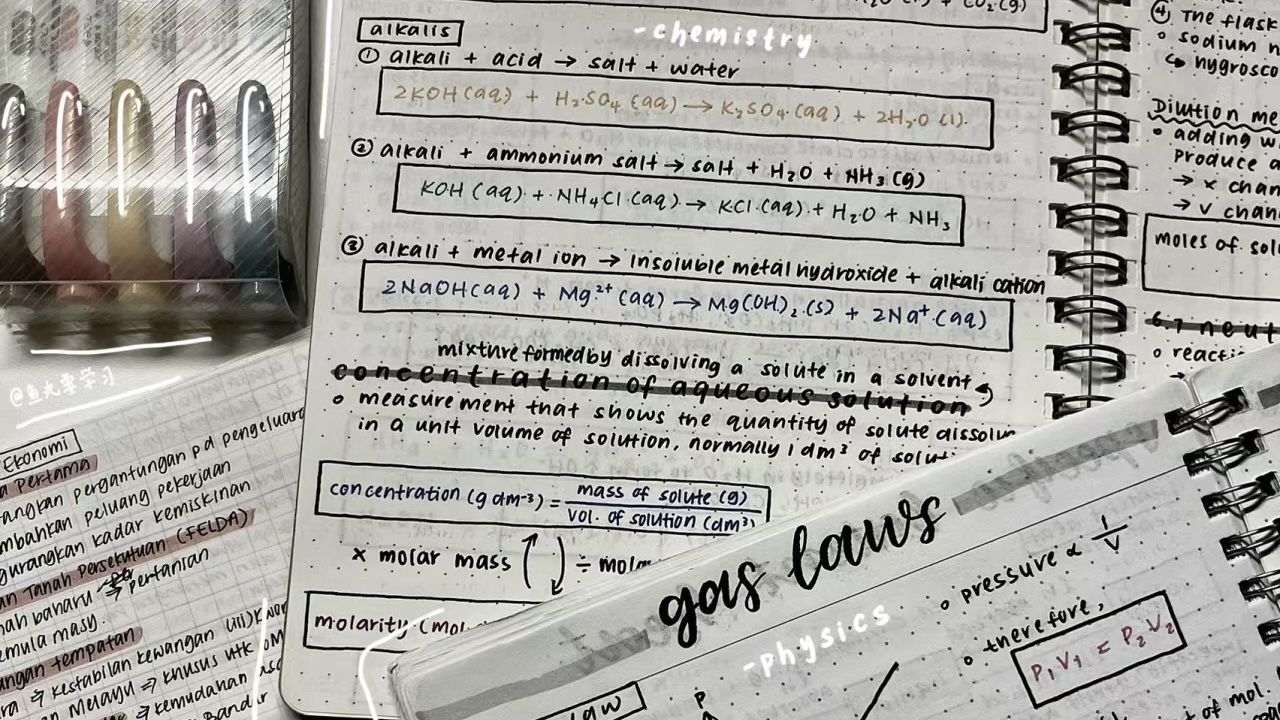 CO₂(g)
alkalis
- chemistry
① alkali + acid → salt + water
2KOH(aq) + H₂SO₄(aq) → K₂SO₄(aq) + 2H₂O(l)
② alkali + ammonium salt → salt + H₂O + NH₃(g)
KOH(aq) + NH₄Cl(aq) → KCl(aq) + H₂O + NH₃
③ alkali + metal ion → insoluble metal hydroxide + alkali cation
2NaOH(aq) + Mg²⁺(aq) → Mg(OH)₂(s) + 2Na⁺(aq)
mixture formed by dissolving a solute in a solvent
concentration of aqueous solution
measurement that shows the quantity of solute
in a unit volume of solution, normally 1 dm³ of
concentration (g dm⁻³) = mass of solute (g)
vol. of solution (dm³)
× molar mass
÷
molarity
④ The flask
sodium
Dilution
adding
produce
→ x
→ v
moles of
6.7
@鱼丸要学习
Ekonomi
pertama
pergantungan pd
peluang pekerjaan
kadar kemiskinan
Tanah Persekutuan (FELDA)
baharu → pertanian
masy.
tempatan
⇒ kestabilan kewangan (iii)
⇒ khusus utk
⇒ kemudahan
Bandar
gas laws
- physics
pressure ∝ 1/V
therefore,
P₁V₁ = P₂V₂
law
P
of mol.